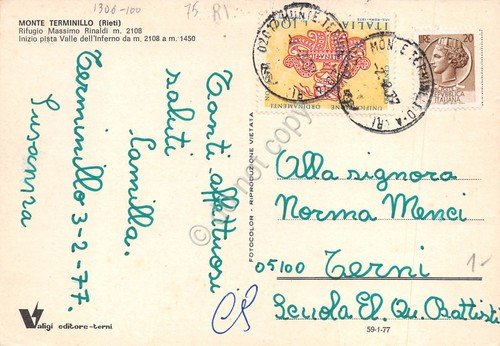 1300-100
75 RI
MONTE TERMINILLO (Rieti)
Rifugio Massimo Rinaldi m. 2108
Inizio pista Valle dell'Inferno da m. 2108 a m. 1450
Tanti affettuosi
saluti
Camilla.
Terminillo 3-2-77.
Susanna
Valigi editore-terni
FOTOCOLOR - RIPRODUZIONE VIETATA
ITALIA
UNIFIC
ORDINAMENTI
20
ITALIANA
Alla signora
Norma Menci
05100 Terni
Scuola El. Qu. Battisti
59-1-77
1-